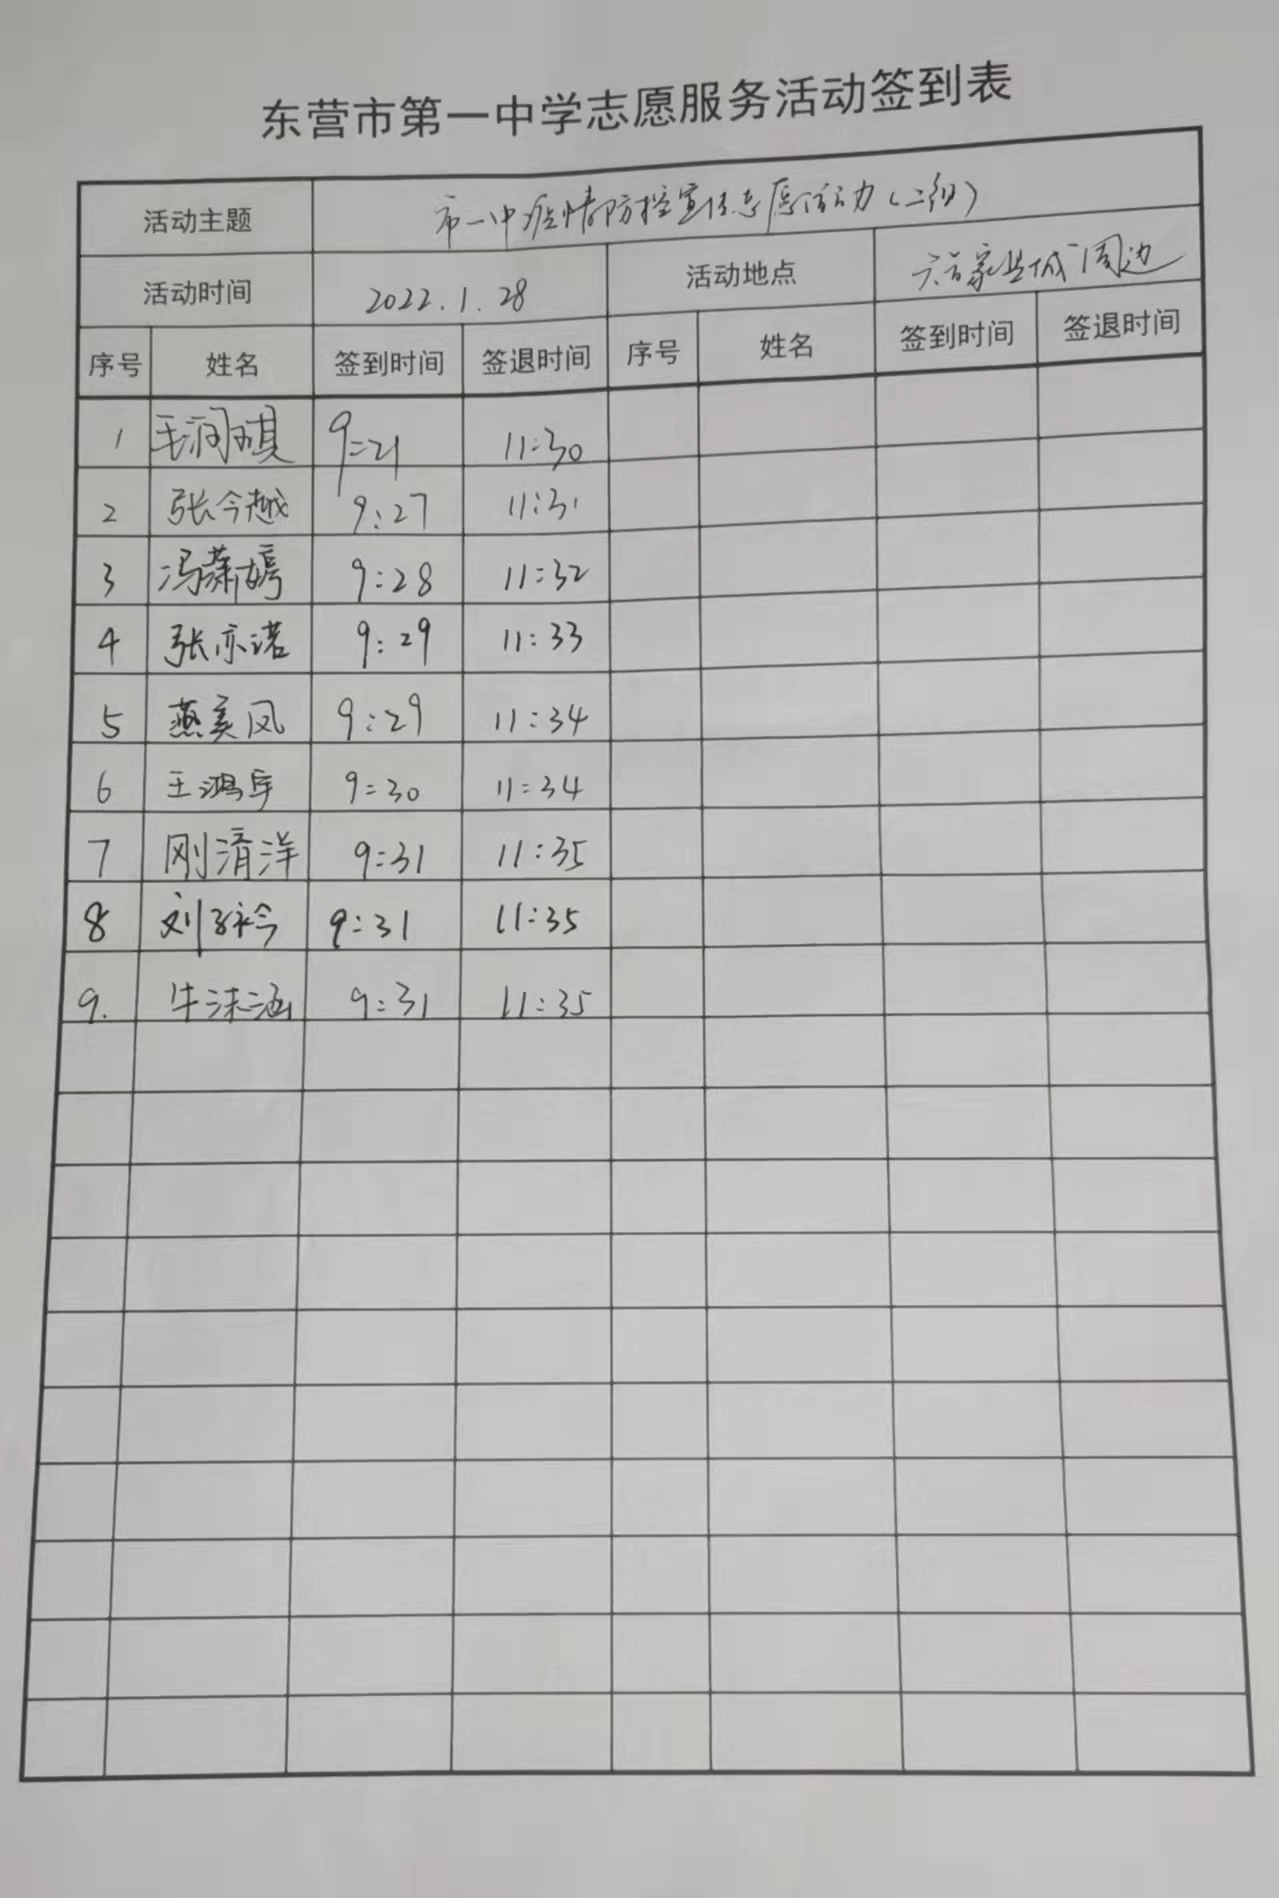 东营市第一中学志愿服务活动签到表
活动主题 市一中疫情防控宣传志愿活动(二组)
活动时间 2022.1.28 活动地点 县城周边
序号 姓名 签到时间 签退时间 序号 姓名 签到时间 签退时间
1 王润琪 9:21 11:30
2 张今越 9:27 11:31
3 冯萧嫮 9:28 11:32
4 张亦诺 9:29 11:33
5 燕美凤 9:29 11:34
6 王鸿宇 9:30 11:34
7 刚清洋 9:31 11:35
8 刘子衿 9:31 11:35
9. 牛沫涵 9:31 11:35